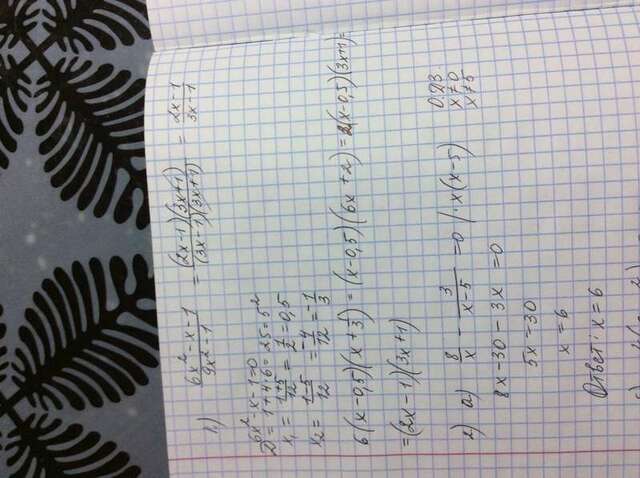 1) (6x² - x - 1)/(9x² - 1) = ((2x - 1)(3x + 1))/((3x - 1)(3x + 1)) = (2x - 1)/(3x - 1)
6x² - x - 1 = 0
D = 1 + 4·6 = 25 = 5²
x₁ = (1+5)/12 = 1/2 = 0,5
x₂ = (1-5)/12 = -4/12 = -1/3
6(x - 0,5)(x + 1/3) = (x - 0,5)(6x + 2) = 2(x - 0,5)(3x+1) =
= (2x - 1)(3x + 1)
2) a) 8/x - 3/(x - 5) = 0 | · x(x - 5)
ОДЗ
x ≠ 0
x ≠ 5
8x - 30 - 3x = 0
5x = 30
x = 6
Ответ: x = 6